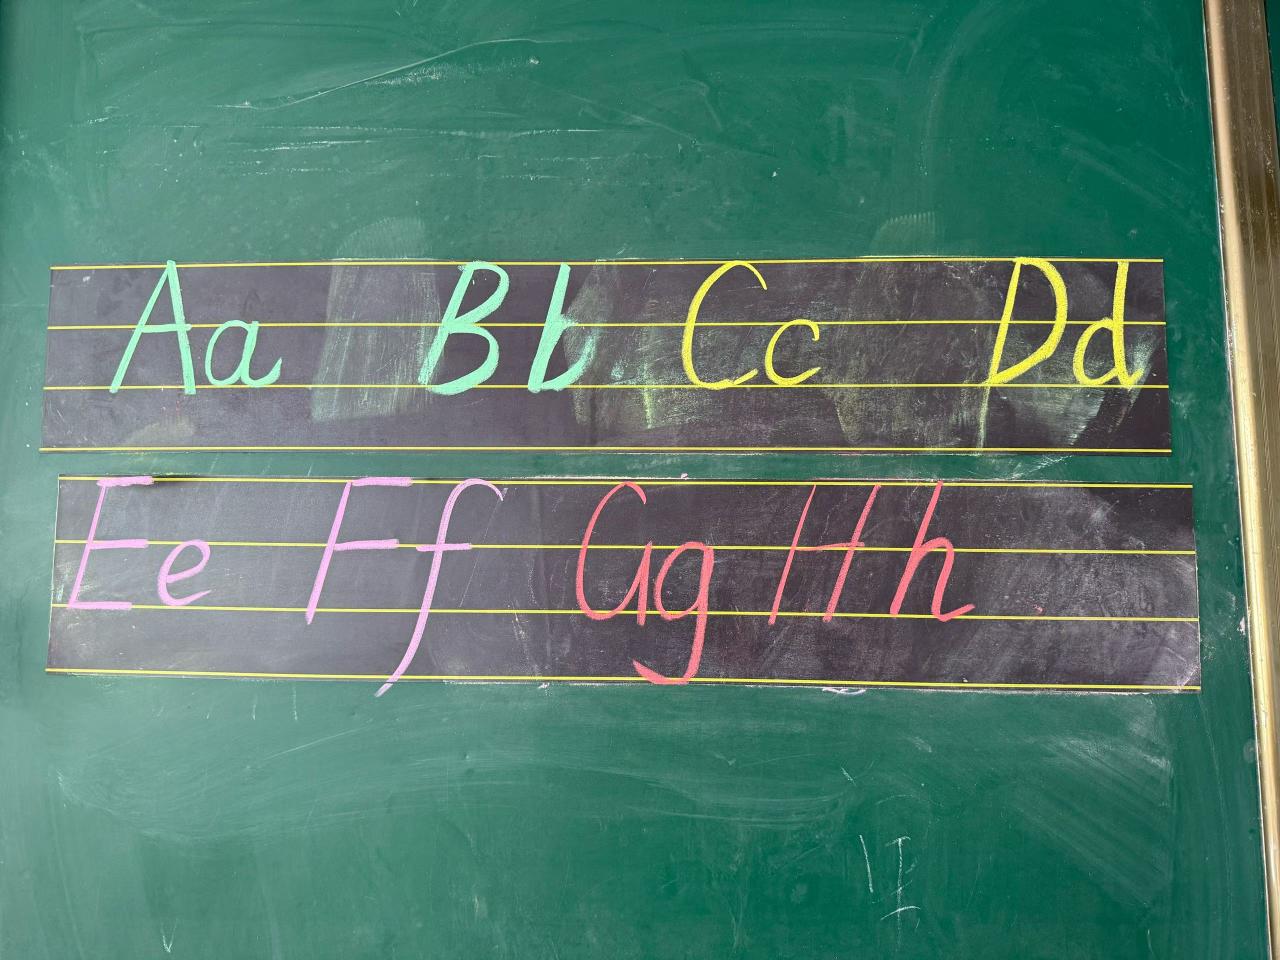 Aa Bb Cc Dd
Ee Ff Gg Hh